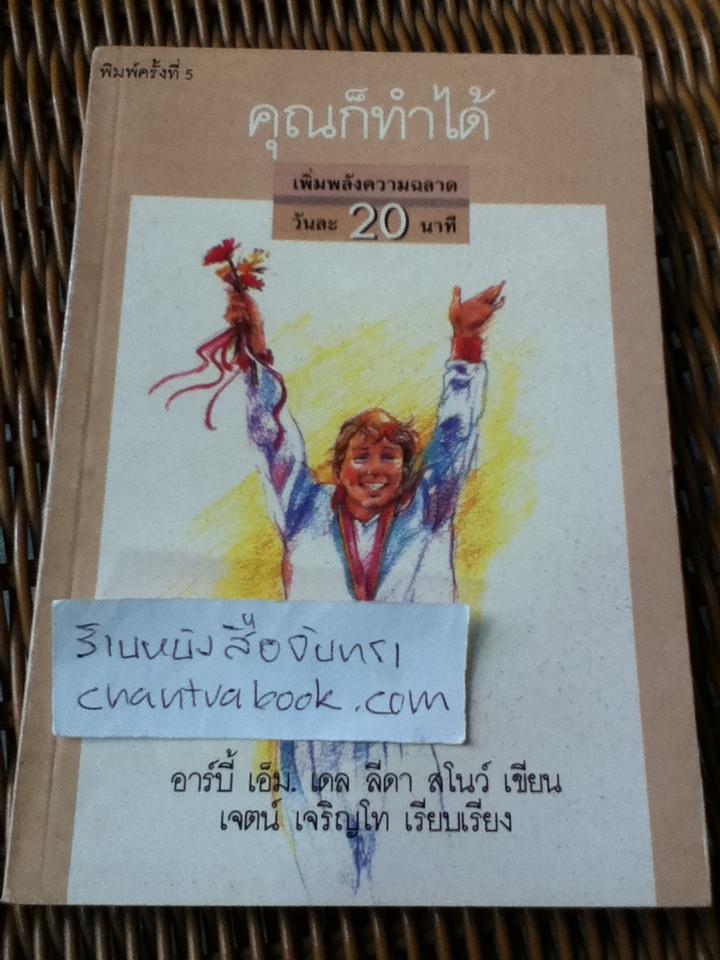 พิมพ์ครั้งที่ 5
คุณก็ทำได้
เพิ่มพลังความฉลาด
วันละ 20 นาที
ร้านหนังสือจันทรา
chantrabook.com
อาร์บี้ เอ็ม. เดล ลีดา สโนว์ เขียน
เจตน์ เจริญโท เรียบเรียง